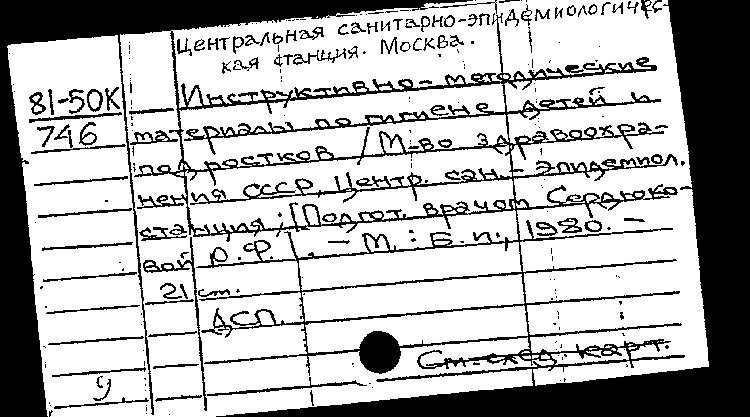 Центральная санитарно-эпидемиологичес-
кая станция. Москва.
81-50К Инструктивно-методические
746 материалы по гигиене детей и
подростков / М-во здравоохра-
нения СССР, Центр. сан.-эпидемиол.
станция; [Подгот. врачом Сердюко-
вой О.Ф.]. - М. : Б.и., 1980. -
21 см.
ДСП.
См. след. карт.